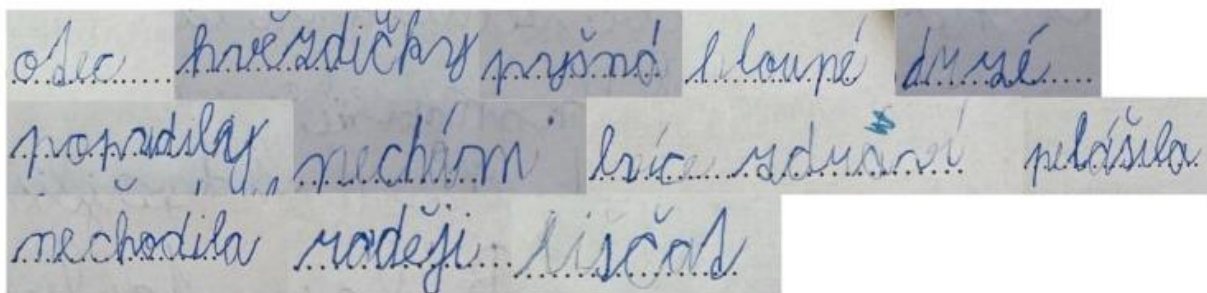 otec hvězdičky pyšná hloupé drzé
popadily nechám lvíce zdraví pelášila
nechodila raději liščat